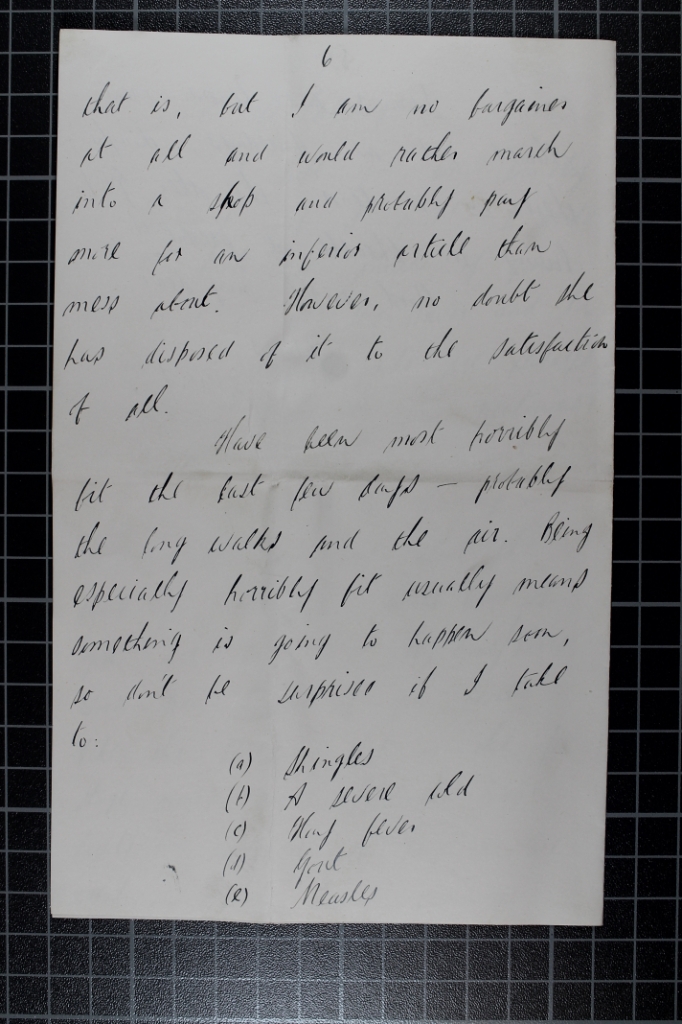 6
that is, but I am no bargainer
at all and would rather march
into a shop and probably pay
more for an inferior article than
mess about. However, no doubt she
has disposed of it to the satisfaction
of all.
Have been most horribly
fit the last few days – probably
the long walks and the air. Being
especially horribly fit usually means
something is going to happen soon,
so don't be surprised if I take
to:
(a) Shingles
(b) A severe cold
(c) Hay fever
(d) Gout
(e) Measles